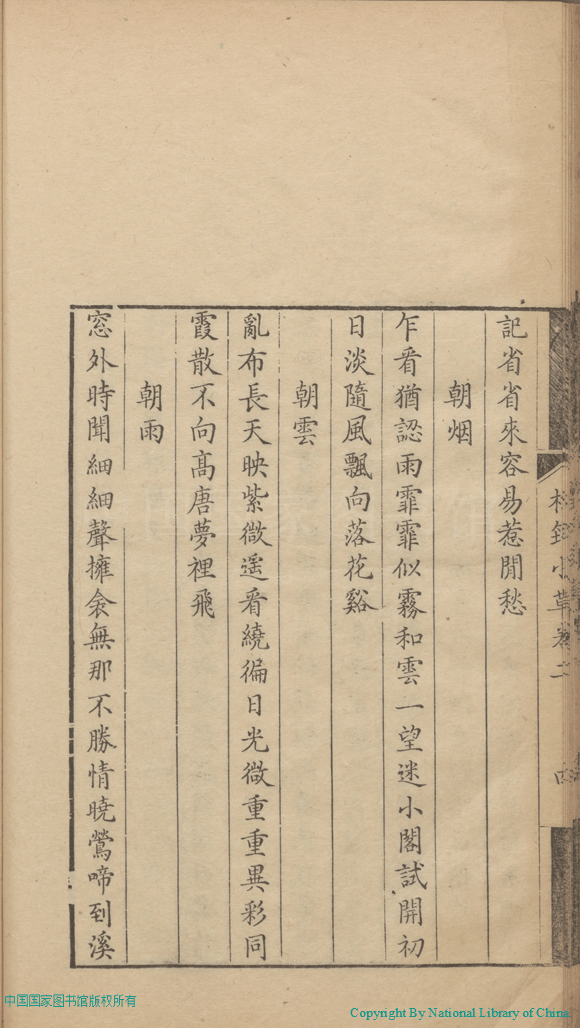 記省省來容易惹閒愁
朝烟
乍看猶認雨霏霏似霧和雲一望迷小閣試開初
日淡隨風飄向落花谿
朝雲
亂布長天映紫微遥看繞徧日光微重重異彩同
霞散不向髙唐夢裡飛
朝雨
窓外時聞細細聲擁衾無那不勝情曉鶯啼到溪
小草卷二
中国国家图书馆版权所有
Copyright By National Library of China.